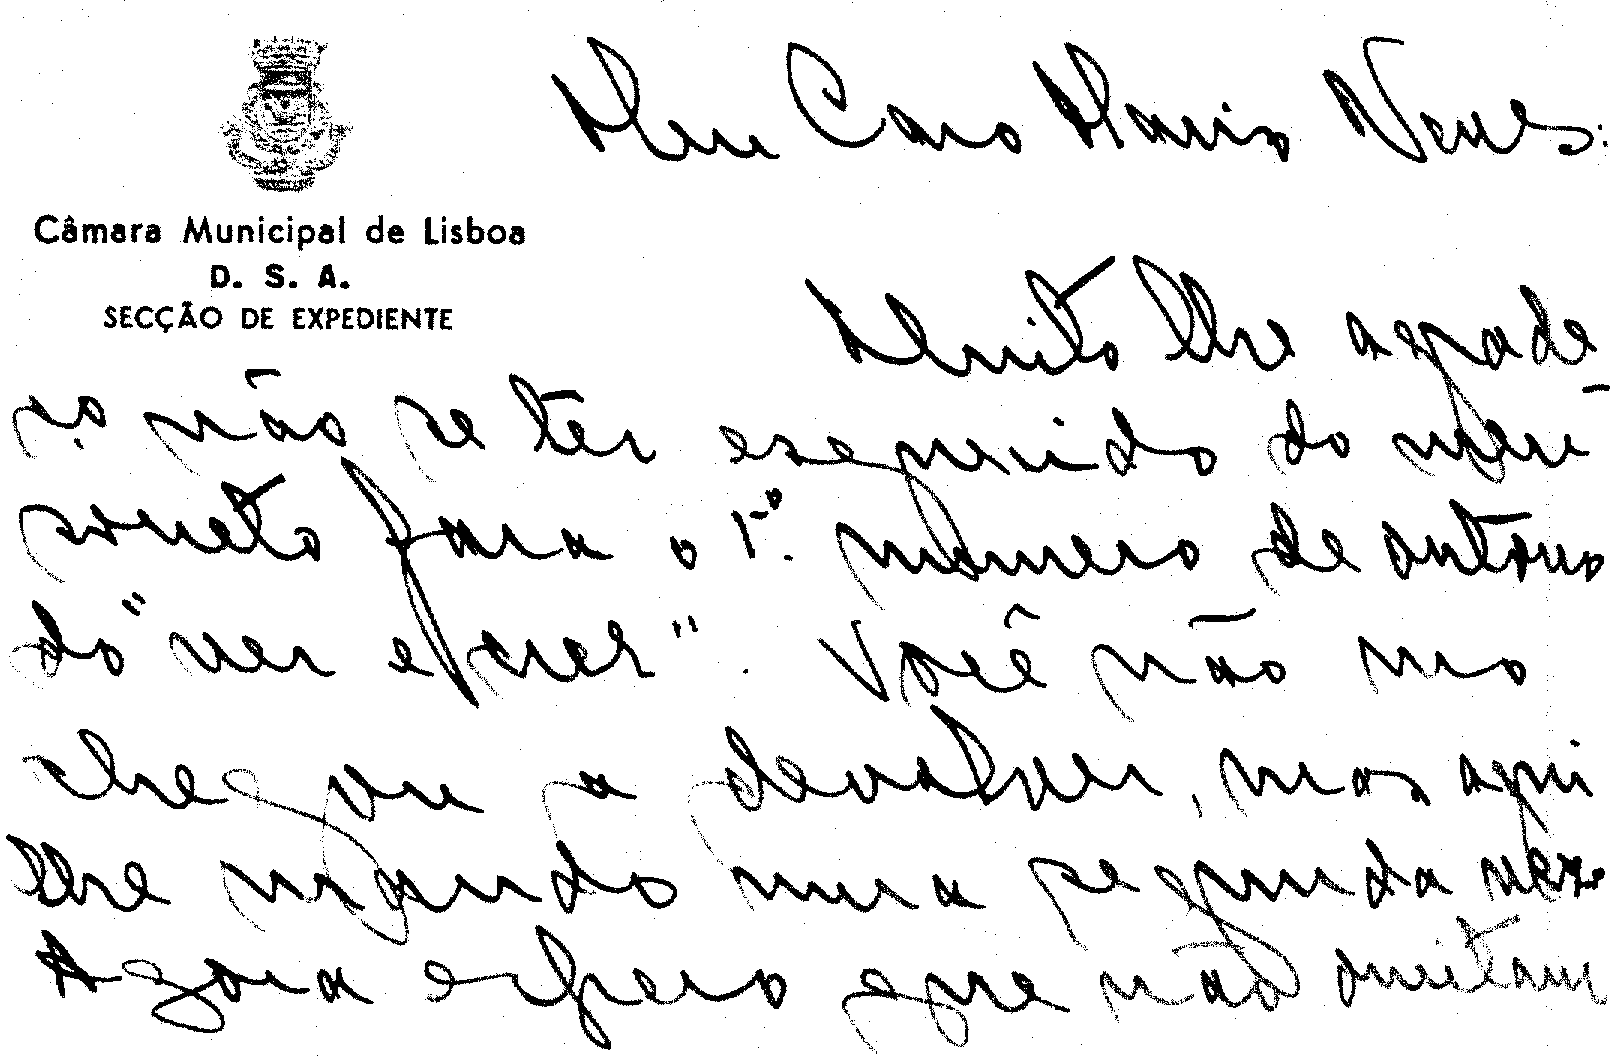 Meu Caro Mario Neves:
Câmara Municipal de Lisboa
D. S. A.
SECÇÃO DE EXPEDIENTE
Muito lhe agrade
ço não se ter esquecido do meu
soneto para o 1º. número de outono
do "ver e crer". Você não mo
chegou a devolver, mas aqui
lhe mando numa segunda vez.
Agora espero que não omitam